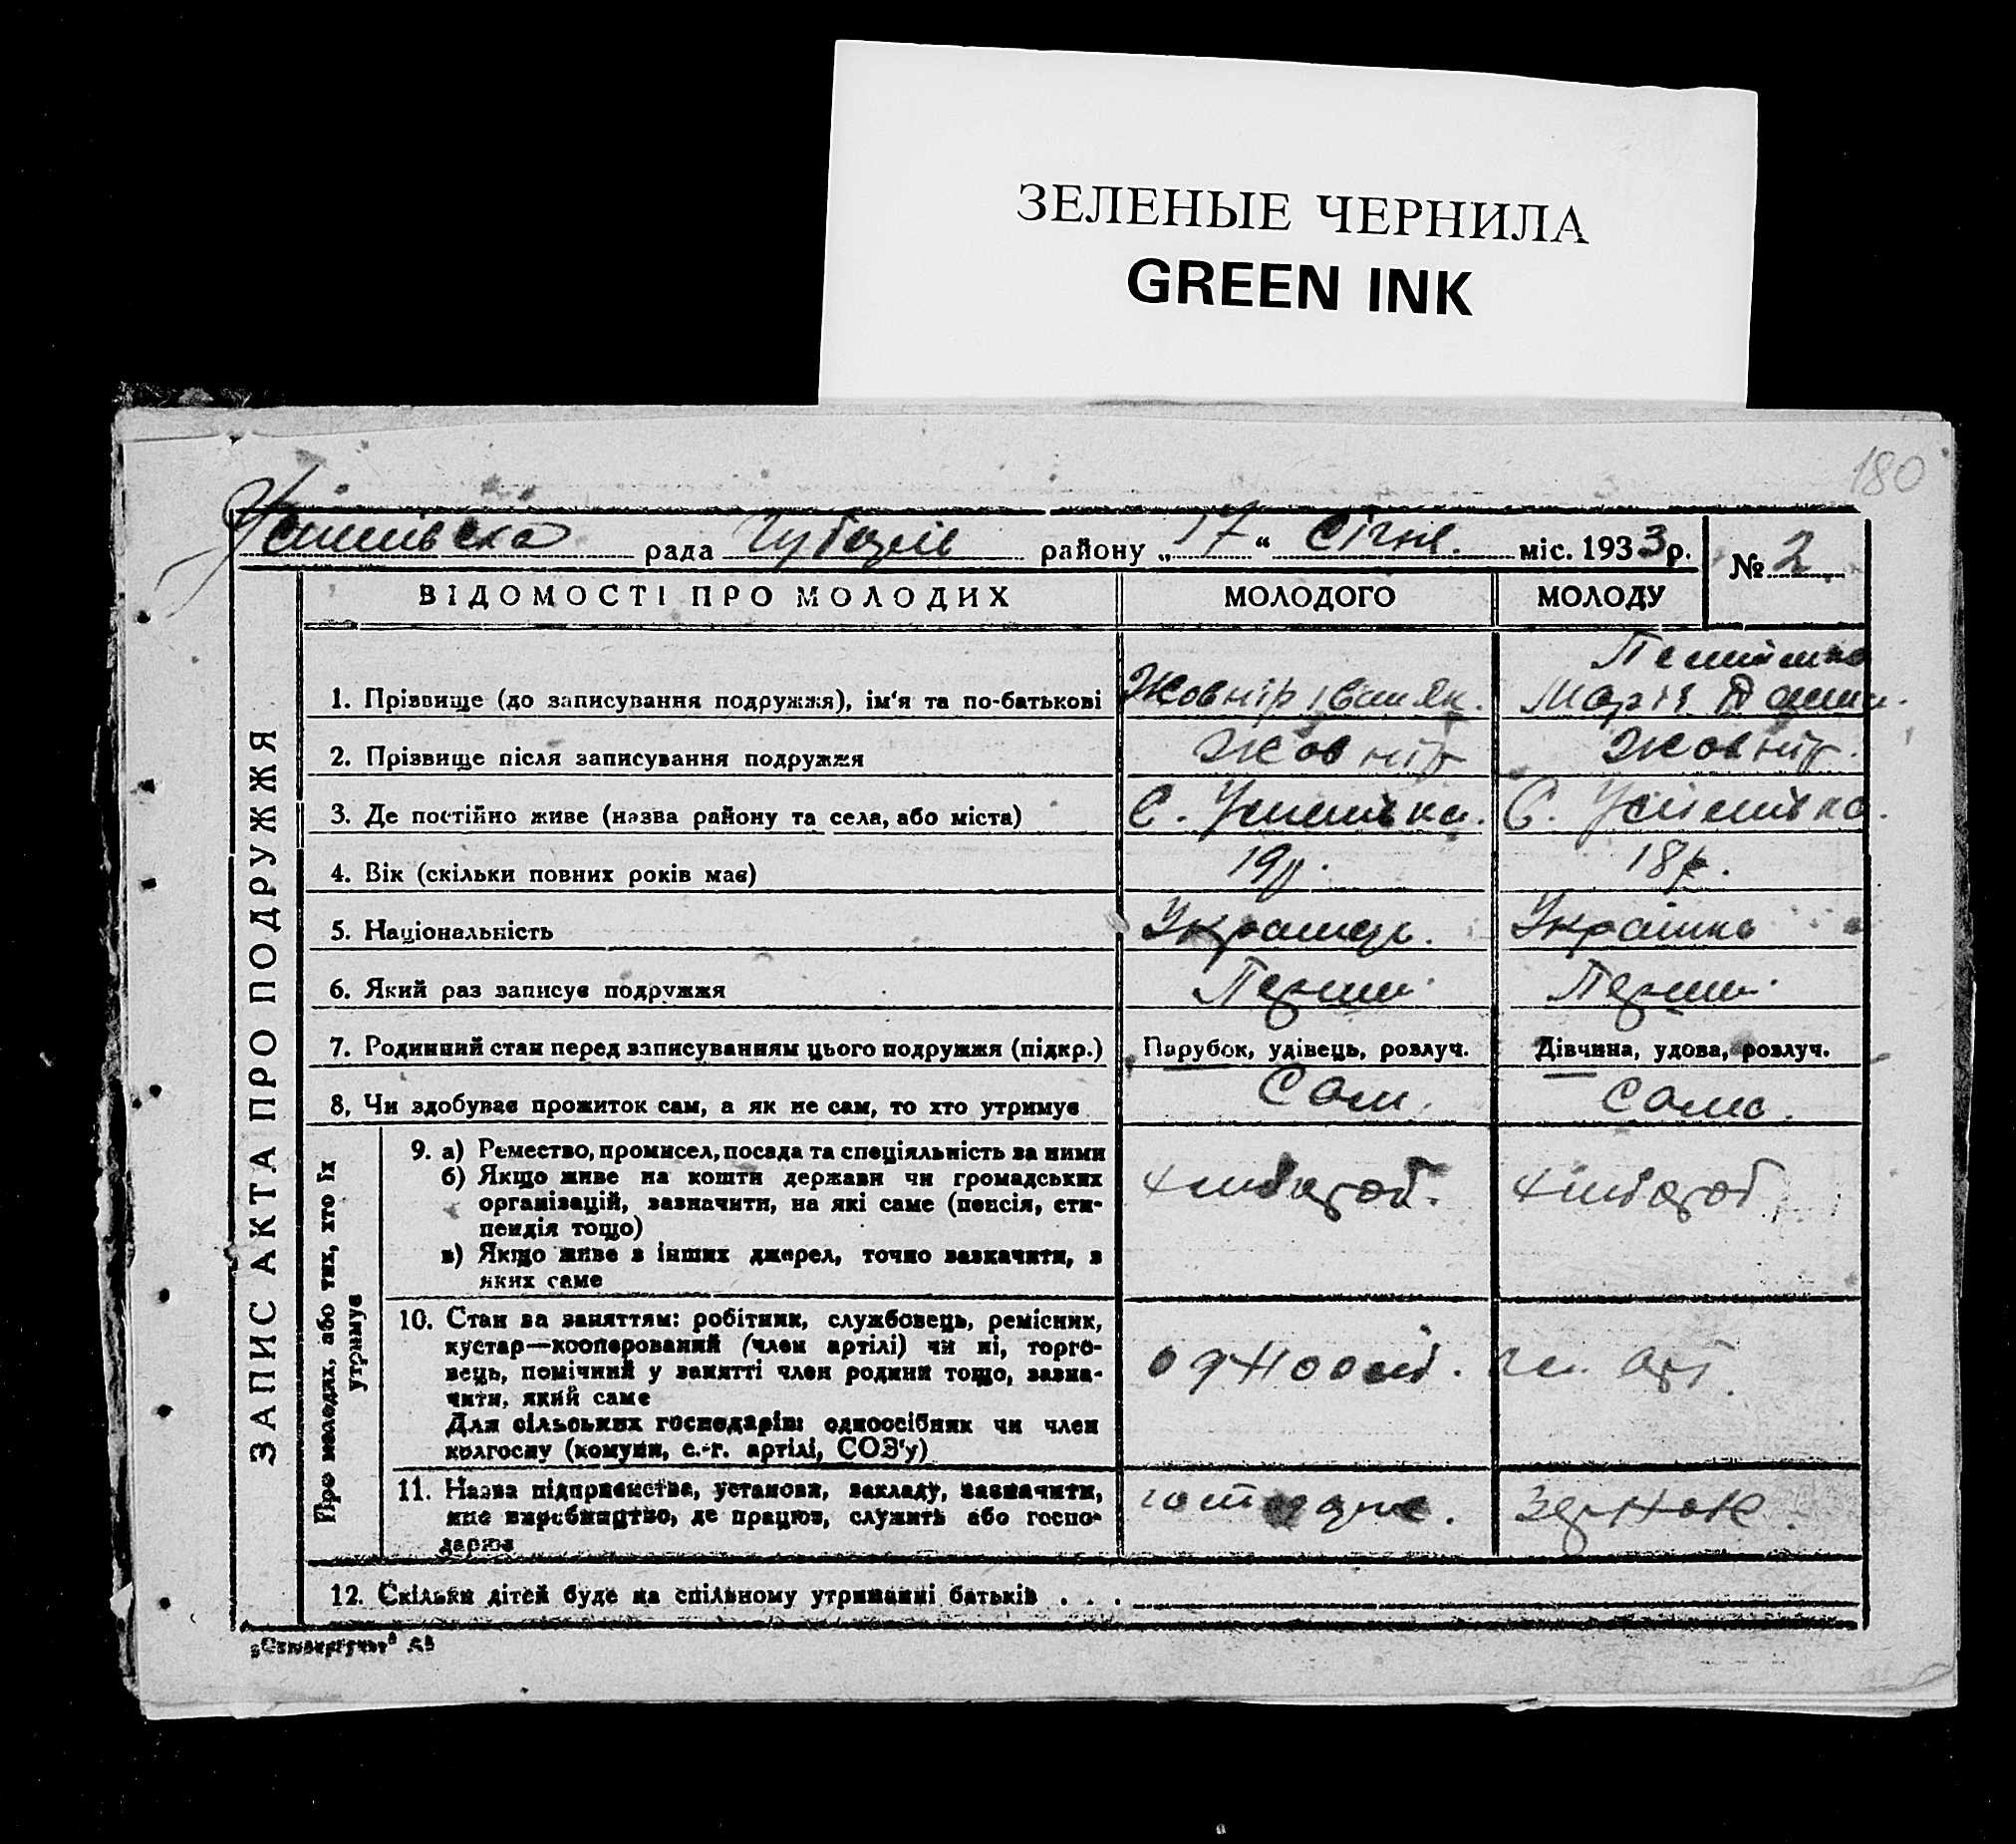 ЗЕЛЕНЫЕ ЧЕРНИЛА
GREEN INK
180
рада району „17“ Січня. міс. 1933 р. № 2
ЗАПИС АКТА ПРО ПОДРУЖЖЯ
ВІДОМОСТІ ПРО МОЛОДИХ МОЛОДОГО МОЛОДУ
1. Прізвище (до записування подружжя), ім‘я та по-батькові Жовнір Іван Як. Марія
2. Прізвище після записування подружжя Жовнір Жовнір.
3. Де постійно живе (назва району та села, або міста) С. Успенівка. С. Успенівка.
4. Вік (скільки повних років має) 19р. 18р.
5. Національність Українець. Українка
6. Який раз записує подружжя Перший. Перший.
7. Родинний стан перед записуванням цього подружжя (підкр.) Парубок, удівець, розлуч. Дівчина, удова, розлуч.
8. Чи здобуває прожиток сам, а як не сам, то хто утримує Сам. Сама.
Про молодих, або тих, хто їх
утримує
9. а) Ремество, промисел, посада та спеціяльність за ними
б) Якщо живе на кошти держави чи громадських
організацій, зазначити, на які саме (пенсія, сти-
пендія тощо)
в) Якщо живе з інших джерел, точно зазначити, з
яких саме
хлібороб. хлібороб
10. Стан за заняттям: робітник, службовець, ремісник,
кустар—кооперований (член артілі) чи ні, торго-
вець, помічний у занятті член родини тощо, зазна-
чити, який саме
Для сільських господарів: одноосібник чи член
колгоспу (комуни, с.-г. артілі, СОЗ‘у)
одноосіб. чл. арт.
11. Назва підприємства, установи, закладу, зазначити,
яке виробництво, де працює, служить або госпо-
дарює
12. Скільки дітей буде на спільному утриманні батьків . . .